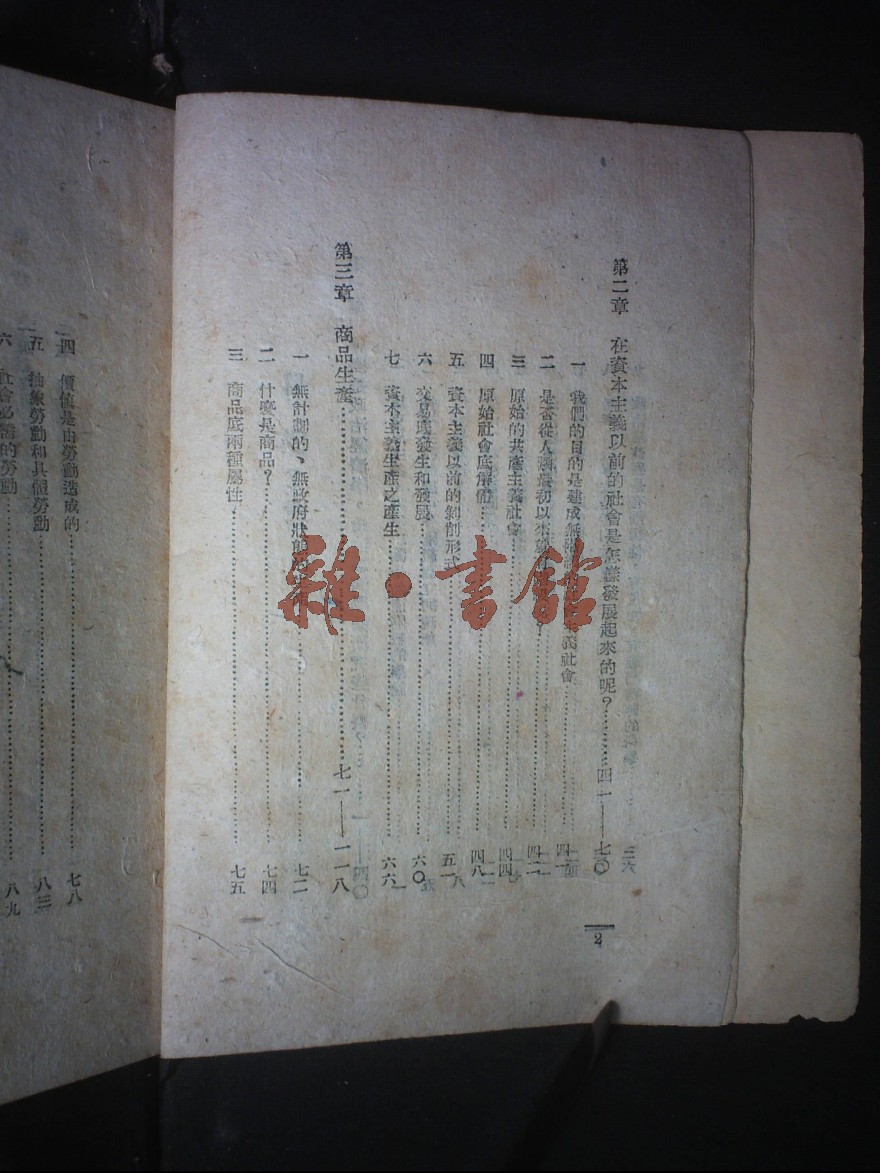 第二章 在資本主義以前的社會是怎樣發展起來的呢?………四一——七〇
一 我們的目的是建成無階 社會………四一
二 是否從人類最初以來 ?………四二
三 原始的共產主義社會………四四
四 原始社會底解體………四八
五 資本主義以前的剝削形式………五一
六 交易底發生和發展………六〇
七 資本主義生產之產生………六六
第三章 商品生產………七一——一二八
一 無計劃的、無政府狀態 ………七二
二 什麼是商品?………七四
三 商品底兩種屬性………七五
2
四 價值是由勞動造成的………七八
五 抽象勞動和具體勞動………八三
六 社會必需的勞動………八九
雜·書館